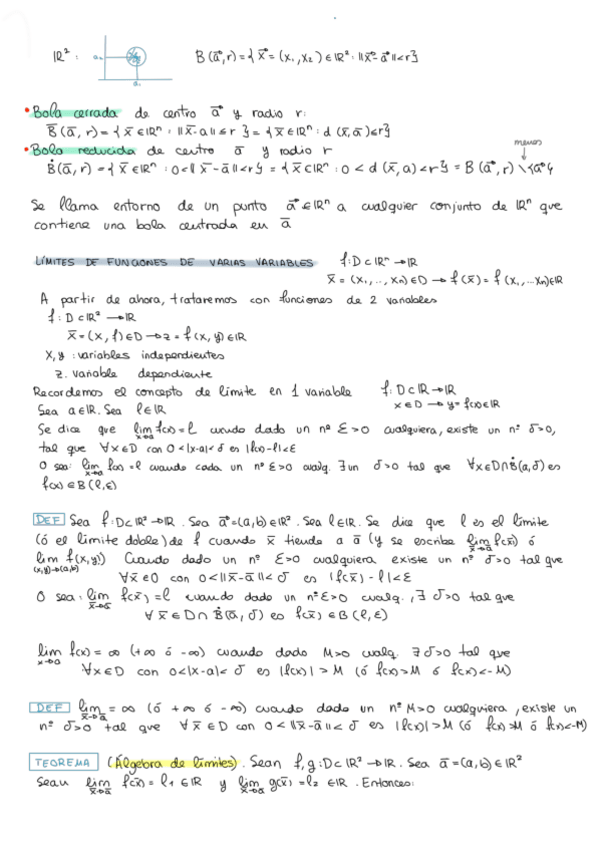 ℝ² : B(a⃗,r) = { x⃗ = (x₁, x₂) ∈ ℝ² : ‖x⃗-a⃗‖ < r }
a₂
a₁
• Bola cerrada de centro a⃗ y radio r:
B̅(a̅, r) = { x̅ ∈ ℝⁿ : ‖x̅-a‖ ≤ r } = { x̅ ∈ ℝⁿ : d(x̅, a̅) ≤ r }
menos
• Bola reducida de centro a⃗ y radio r
Ḃ(a̅, r) = { x̅ ∈ ℝⁿ : 0 < ‖x̅-a̅‖ < r } = { x̅ ∈ ℝⁿ : 0 < d(x̅, a) < r } = B(a⃗, r) \ {a⃗}
Se llama entorno de un punto a⃗ ∈ ℝⁿ a cualquier conjunto de ℝⁿ que
contiene una bola centrada en a̅
LÍMITES DE FUNCIONES DE VARIAS VARIABLES f: D ⊂ ℝⁿ → ℝ
x̅ = (x₁, ..., xn) ∈ D → f(x̅) = f(x₁, ... xn) ∈ ℝ
A partir de ahora, trataremos con funciones de 2 variables
f: D ⊂ ℝ² → ℝ
x̅ = (x, y) ∈ D → z = f(x, y) ∈ ℝ
x, y : variables independientes
z. variable dependiente
Recordemos el concepto de límite en 1 variable f: D ⊂ ℝ → ℝ
Sea a ∈ ℝ. Sea l ∈ ℝ x ∈ D → y = f(x) ∈ ℝ
Se dice que lim x→a f(x) = l cuando dado un nº ε>0 cualquiera, existe un nº δ>0,
tal que ∀x∈D con 0<|x-a|<δ es |f(x)-l|<ε
O sea: lim x→a f(x) = l cuando cada un nº ε>0 cualq. ∃ un δ>0 tal que ∀x∈D∩Ḃ(a,δ) es
f(x) ∈ B(l, ε)
DEF Sea f: D ⊂ ℝ² → ℝ. Sea a⃗ = (a,b) ∈ ℝ². Sea l ∈ ℝ. Se dice que l es el límite
(ó el límite doble) de f cuando x̅ tiende a a̅ (y se escribe lim x̅→a̅ f(x̅) ó
lim (x,y)→(a,b) f(x,y)) Cuando dado un nº ε>0 cualquiera existe un nº δ>0 tal que
∀x̅∈D con 0<‖x̅-a̅‖<δ es |f(x̅)-l|<ε
O sea: lim x̅→a̅ f(x̅) = l cuando dado un nº ε>0 cualq., ∃ δ>0 tal que
∀x̅∈D∩Ḃ(a̅, δ) es f(x̅) ∈ B(l, ε)
lim x→a f(x) = ∞ (+∞ ó -∞) cuando dado M>0 cualq. ∃ δ>0 tal que
∀x∈D con 0<|x-a|<δ es |f(x)|>M (ó f(x)>M ó f(x)<-M)
DEF lim x̅→a̅ = ∞ (ó +∞ ó -∞) cuando dado un nº M>0 cualquiera, existe un
nº δ>0 tal que ∀x̅∈D con 0<‖x̅-a̅‖<δ es |f(x)|>M (ó f(x)>M ó f(x)<-M)
TEOREMA (Álgebra de límites). Sean f, g: D ⊂ ℝ² → ℝ. Sea a̅ = (a,b) ∈ ℝ²
Sean lim x̅→a̅ f(x̅) = l₁ ∈ ℝ y lim x̅→a̅ g(x̅) = l₂ ∈ ℝ. Entonces: